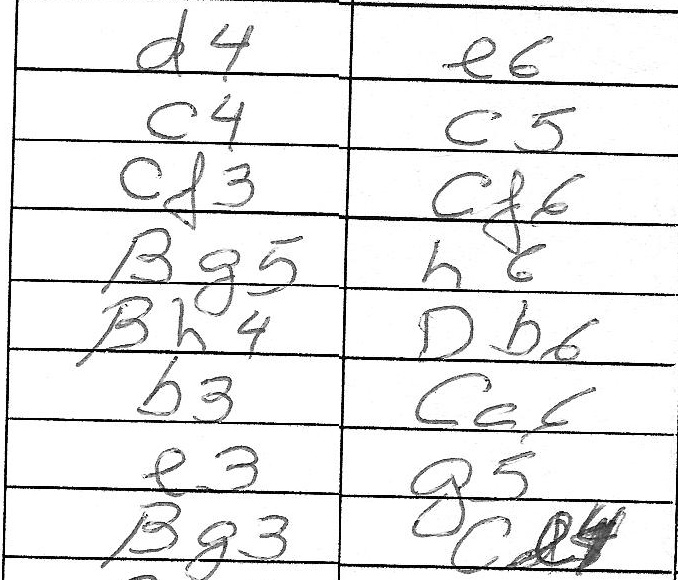 d4 e6
c4 c5
Cf3 Cf6
Bg5 h6
Bh4 Db6
b3 Cc6
e3 g5
Bg3 Ce4